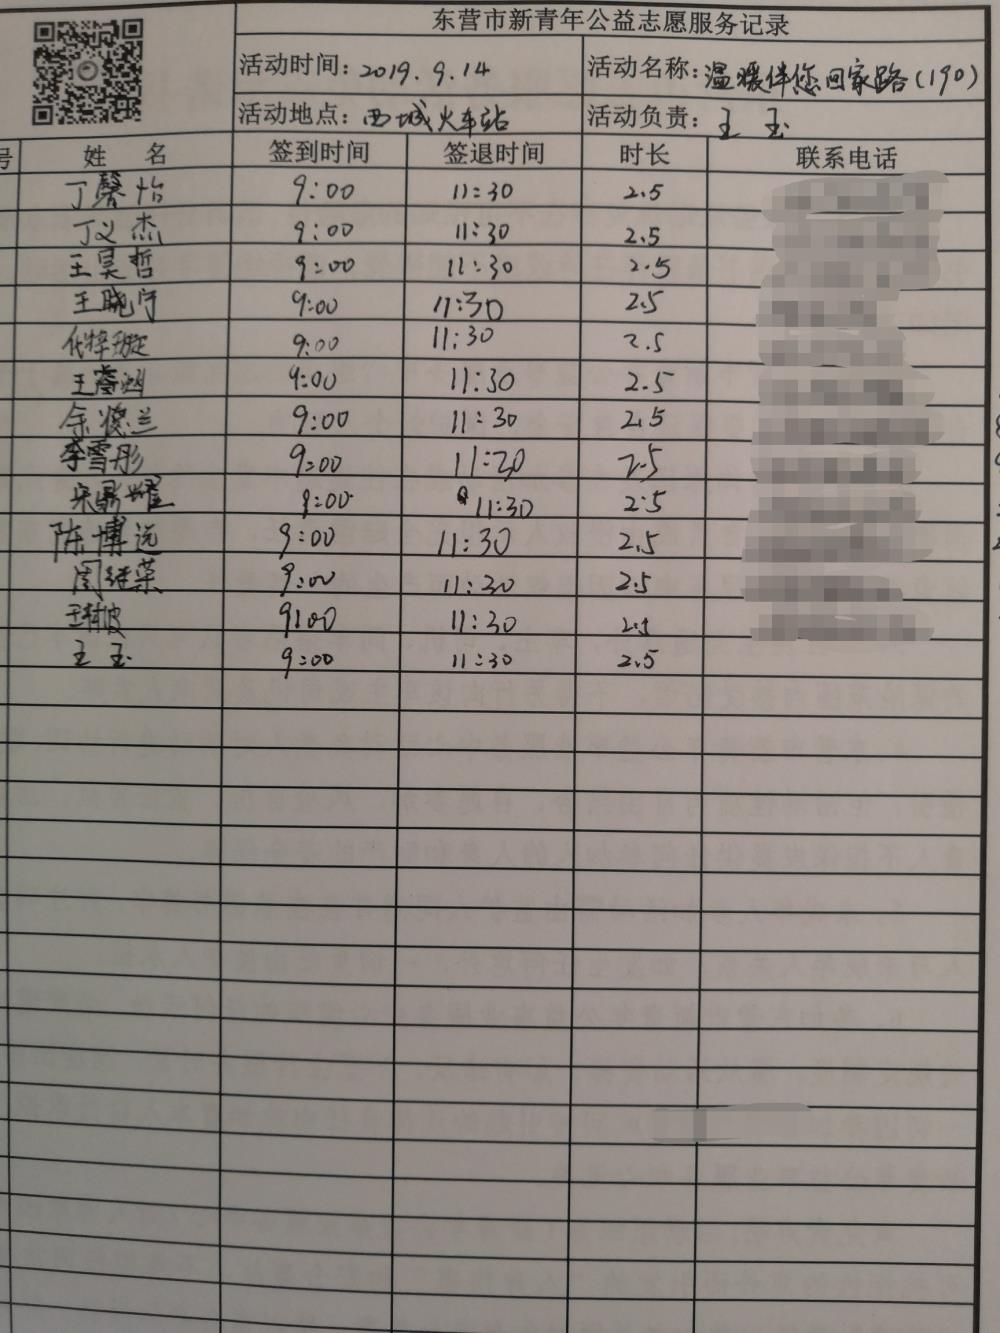 东营市新青年公益志愿服务记录
活动时间：2019.9.14 活动名称：温暖伴您回家路(190)
活动地点：西城火车站 活动负责：王玉
号 姓 名 签到时间 签退时间 时长 联系电话
丁馨怡 9:00 11:30 2.5
丁义杰 9:00 11:30 2.5
王昊哲 9:00 11:30 2.5
王晓宁 9:00 11:30 2.5
代梓璇 9:00 11:30 2.5
王睿 9:00 11:30 2.5
余德兰 9:00 11:30 2.5
李雪彤 9:00 11:30 2.5
宋鼎耀 9:00 11:30 2.5
陈博远 9:00 11:30 2.5
周继荣 9:00 11:30 2.5
9:00 11:30 2.5
王玉 9:00 11:30 2.5